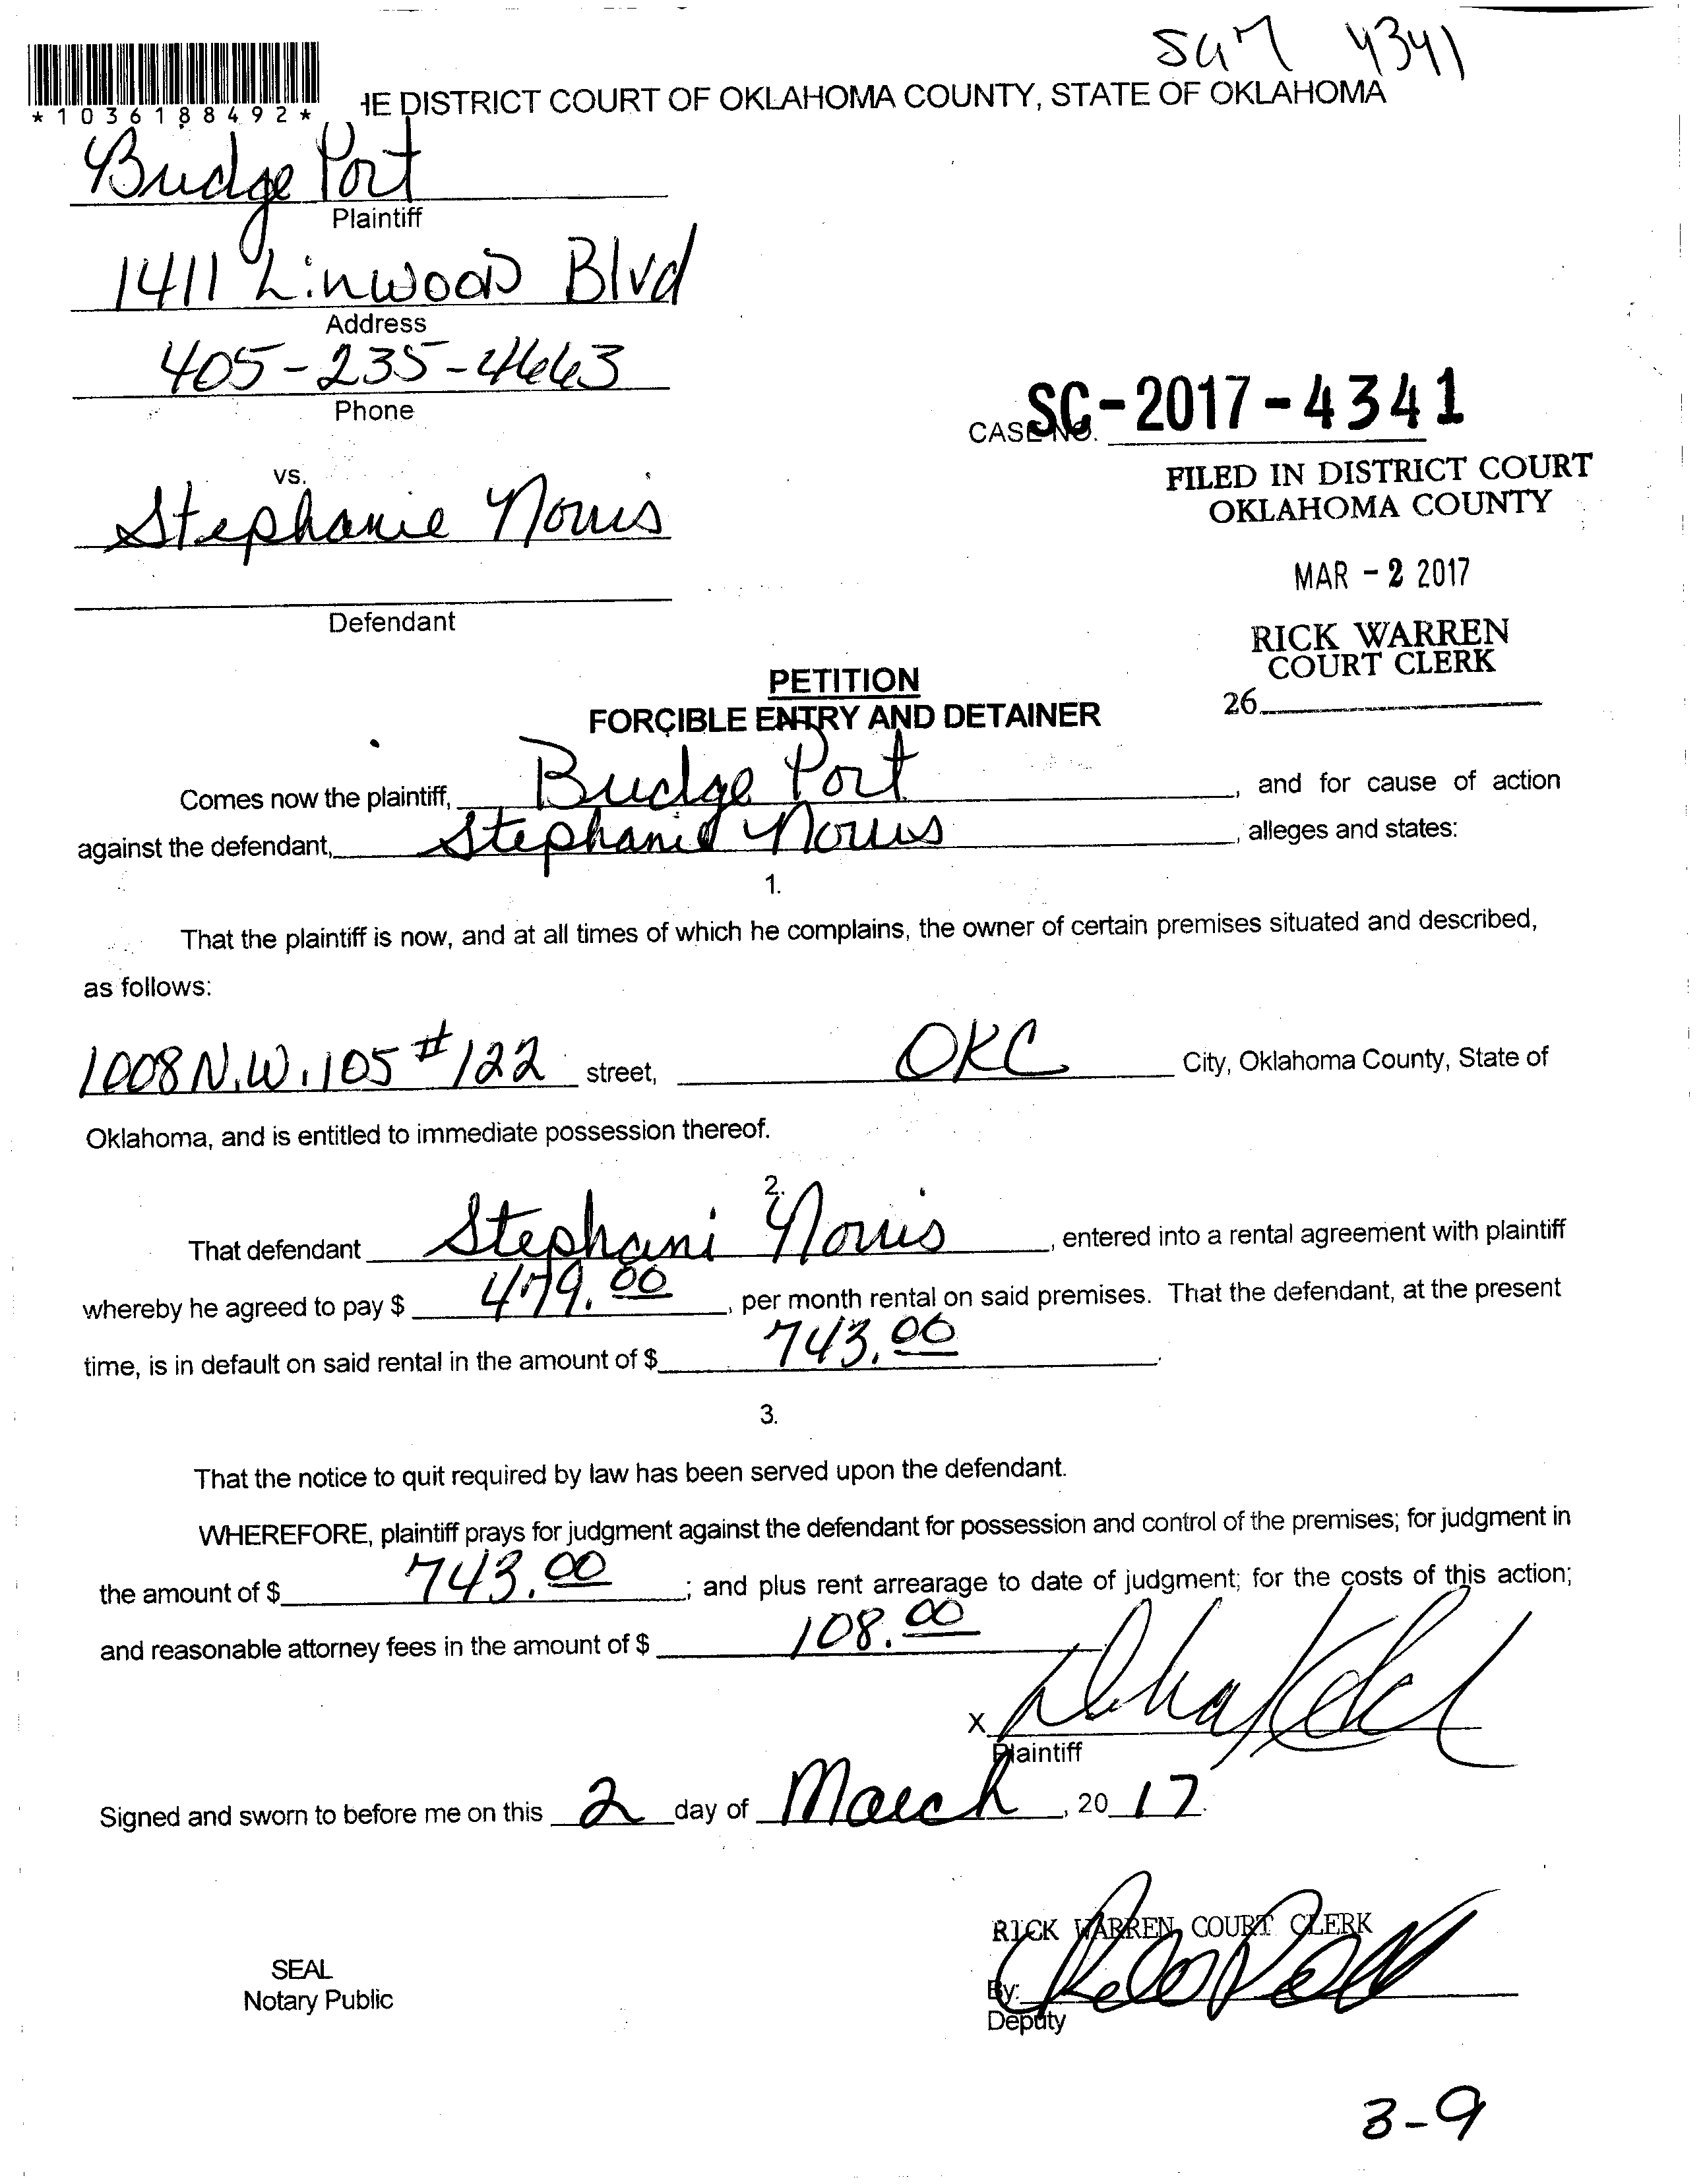 Sum 4341
*1036188492*
HE DISTRICT COURT OF OKLAHOMA COUNTY, STATE OF OKLAHOMA
Budge Port
Plaintiff
1411 Linwood Blvd
Address
405-235-4663
Phone
CASE NO. SC-2017-4341
FILED IN DISTRICT COURT
OKLAHOMA COUNTY
vs.
Stephanie Norris
MAR -2 2017
Defendant
RICK WARREN
COURT CLERK
26
PETITION
FORCIBLE ENTRY AND DETAINER
Comes now the plaintiff, Budge Port, and for cause of action
against the defendant, Stephanie Norris, alleges and states:
1.
That the plaintiff is now, and at all times of which he complains, the owner of certain premises situated and described,
as follows:
1008 N.W. 105 #122 street, OKC City, Oklahoma County, State of
Oklahoma, and is entitled to immediate possession thereof.
2.
That defendant Stephani Norris, entered into a rental agreement with plaintiff
whereby he agreed to pay $ 479.00, per month rental on said premises. That the defendant, at the present
time, is in default on said rental in the amount of $ 743.00.
3.
That the notice to quit required by law has been served upon the defendant.
WHEREFORE, plaintiff prays for judgment against the defendant for possession and control of the premises; for judgment in
the amount of $ 743.00; and plus rent arrearage to date of judgment; for the costs of this action;
and reasonable attorney fees in the amount of $ 108.00
x
Plaintiff
Signed and sworn to before me on this 2 day of March, 2017.
RICK WARREN, COURT CLERK
SEAL
Notary Public
By:
Deputy
3-9